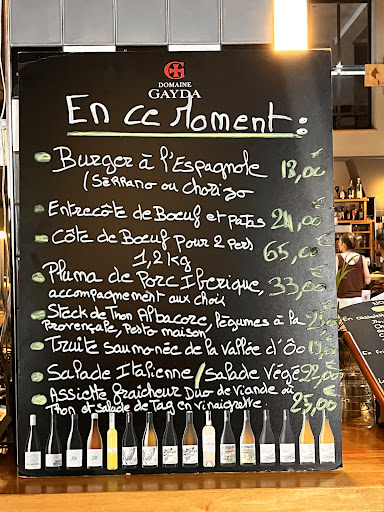 DOMAINE
GAYDA
En ce Moment:
Burger à l'Espagnole
(Serrano ou chorizo 18,00 €
Entrecôte de Boeuf et patas 24,00
Côte de Boeuf pour 2 pers 65,00
1,2 kg
Pluma de Porc Iberique, 33,00
accompagnement aux choix
Steck de Thon Albacore, légumes à la
Provençale, pesto maison
Truite saumonée de la vallée d'Ôo
Salade Italienne / Salade Végé 22,00
Assiette fraicheur Duo de viande ou
Thon et salade de Tag en vinaigrette. 25,00